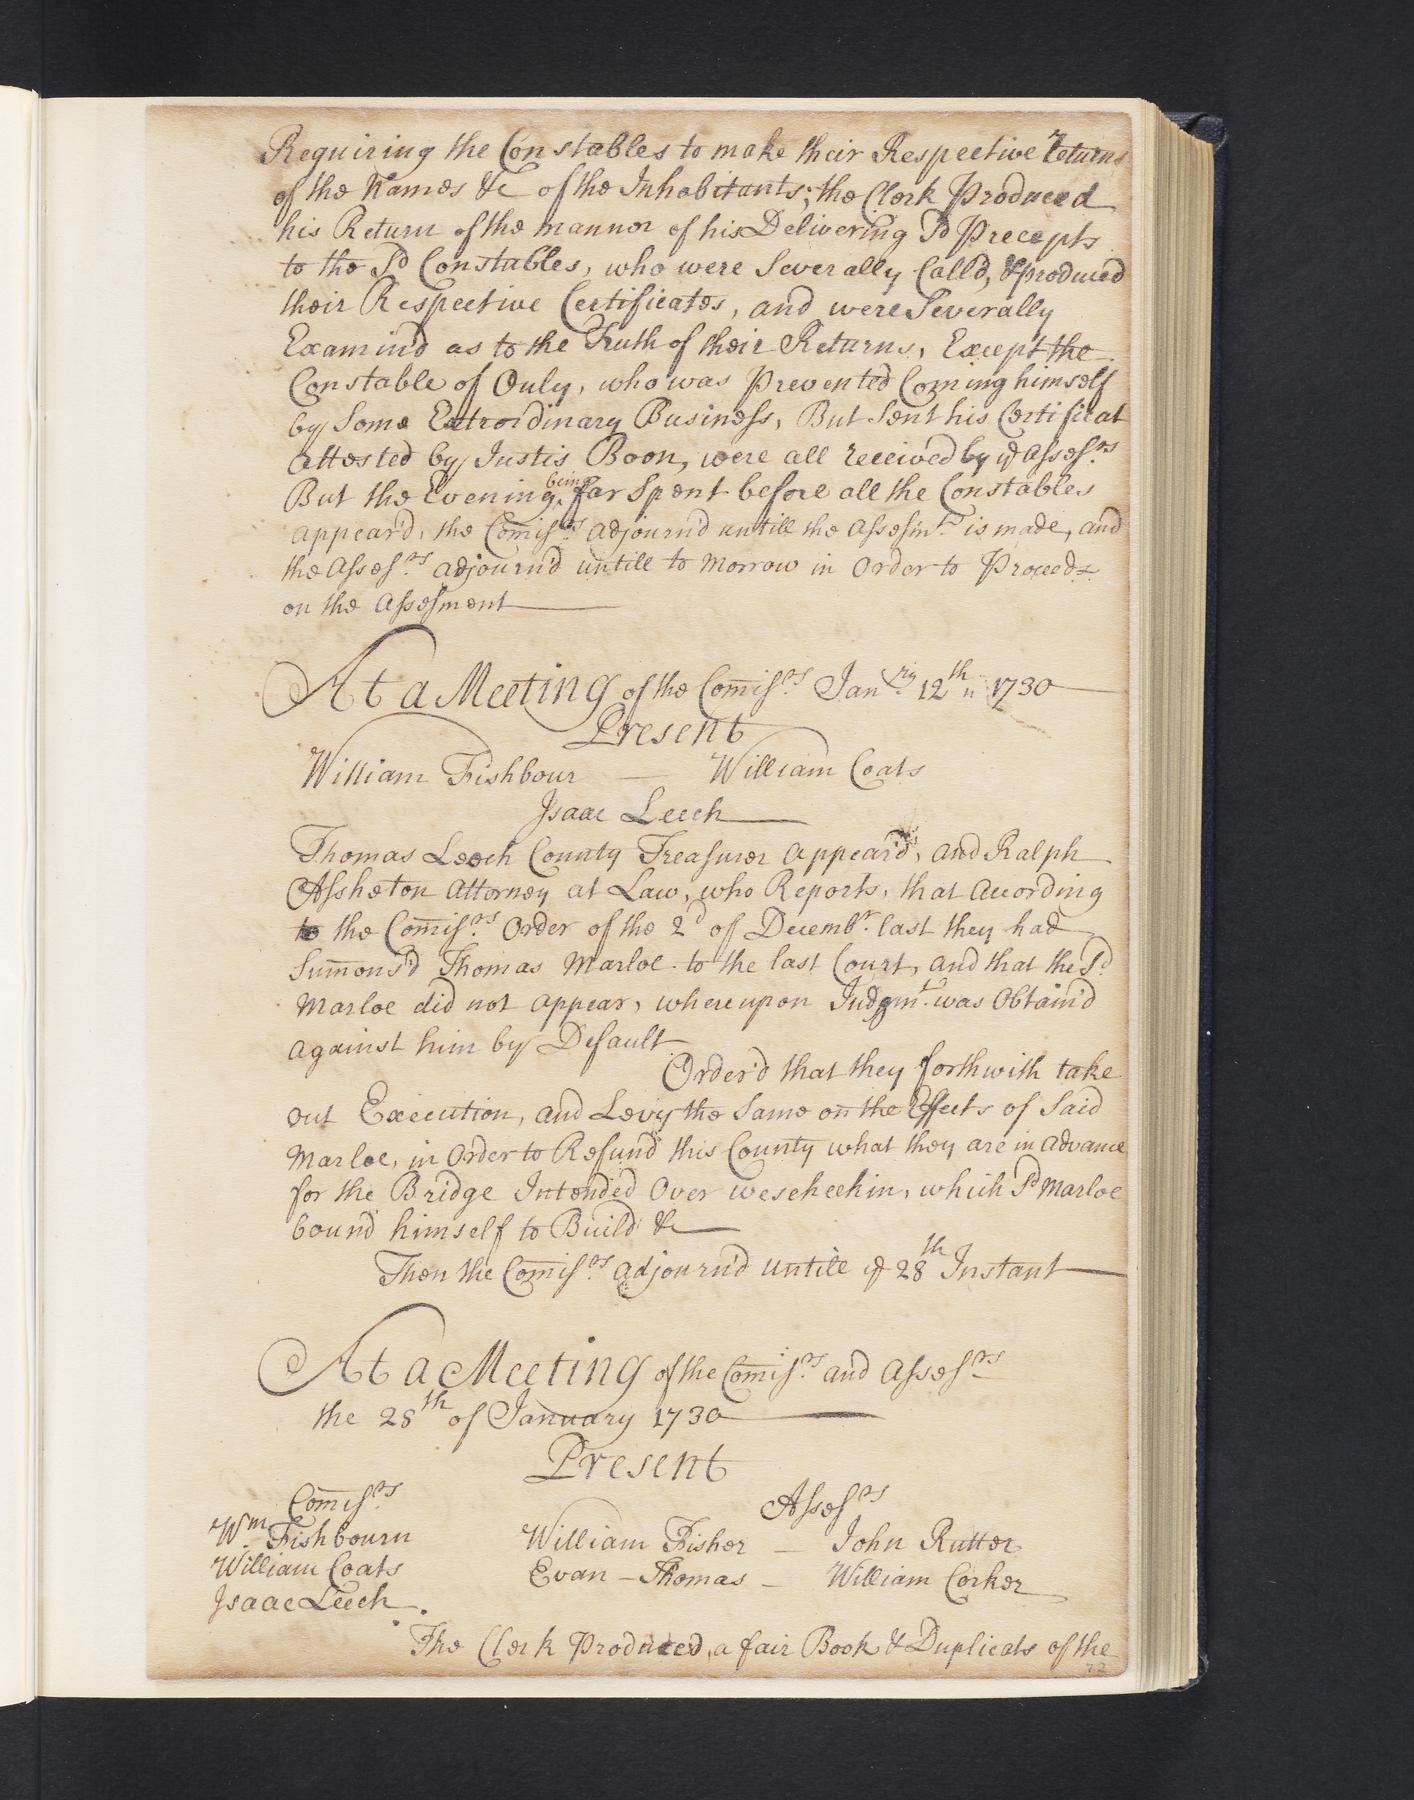 Requiring the Constables to make their Respective Returns
of the Names &c of the Inhabitants; the Clerk Produced
his Return of the manner of his Delivering Sd Precepts
to the Sd Constables, who were Severally Call'd, & produced
their Respective Certificates, and were Severally
Examin'd as to the Truth of their Returns, Except the
Constable of Ouly, who was Prevented Coming himself
by Some Extrordinary Business, But Sent his Certificat
attested by Justis Boon, were all received by ye Assesrs
But the Evening being far Spent before all the Constables
appear'd, the Comisrs adjourn'd untill the Assesmt is made, and
the Assesrs adjourn'd untill to Morrow in Order to Proceed
on the Assesment
At a Meeting of the Comisrs Janry 12th 1730
Present
William Fishbour — William Coats
Isaac Leech
Thomas Leech County Treasurer appear'd, and Ralph
Assheton Attorney at Law, who Reports, that according
to the Comisrs Order of the 2d of Decembr last they had
Sumons'd Thomas Marloe to the last Court, and that the Sd
Marloe did not appear, whereupon Judgmt was Obtain'd
against him by Default
Order'd that they forthwith take
out Execution, and Levy the Same on the Effects of Said
Marloe, in Order to Refund this County what they are in advance
for the Bridge Intended Over weseheekin, which Sd Marloe
bound himself to Build &c
Then the Comisrs adjourn'd untill ye 28th Instant
At a Meeting of the Comisrs and Assesrs
the 28th of January 1730
Present
Comisrs Assesrs
Wm Fishbourn William Fisher — John Rutter
William Coats Evan Thomas — William Corker
Isaac Leech
The Clerk Produced a fair Book & Duplicats of the
72